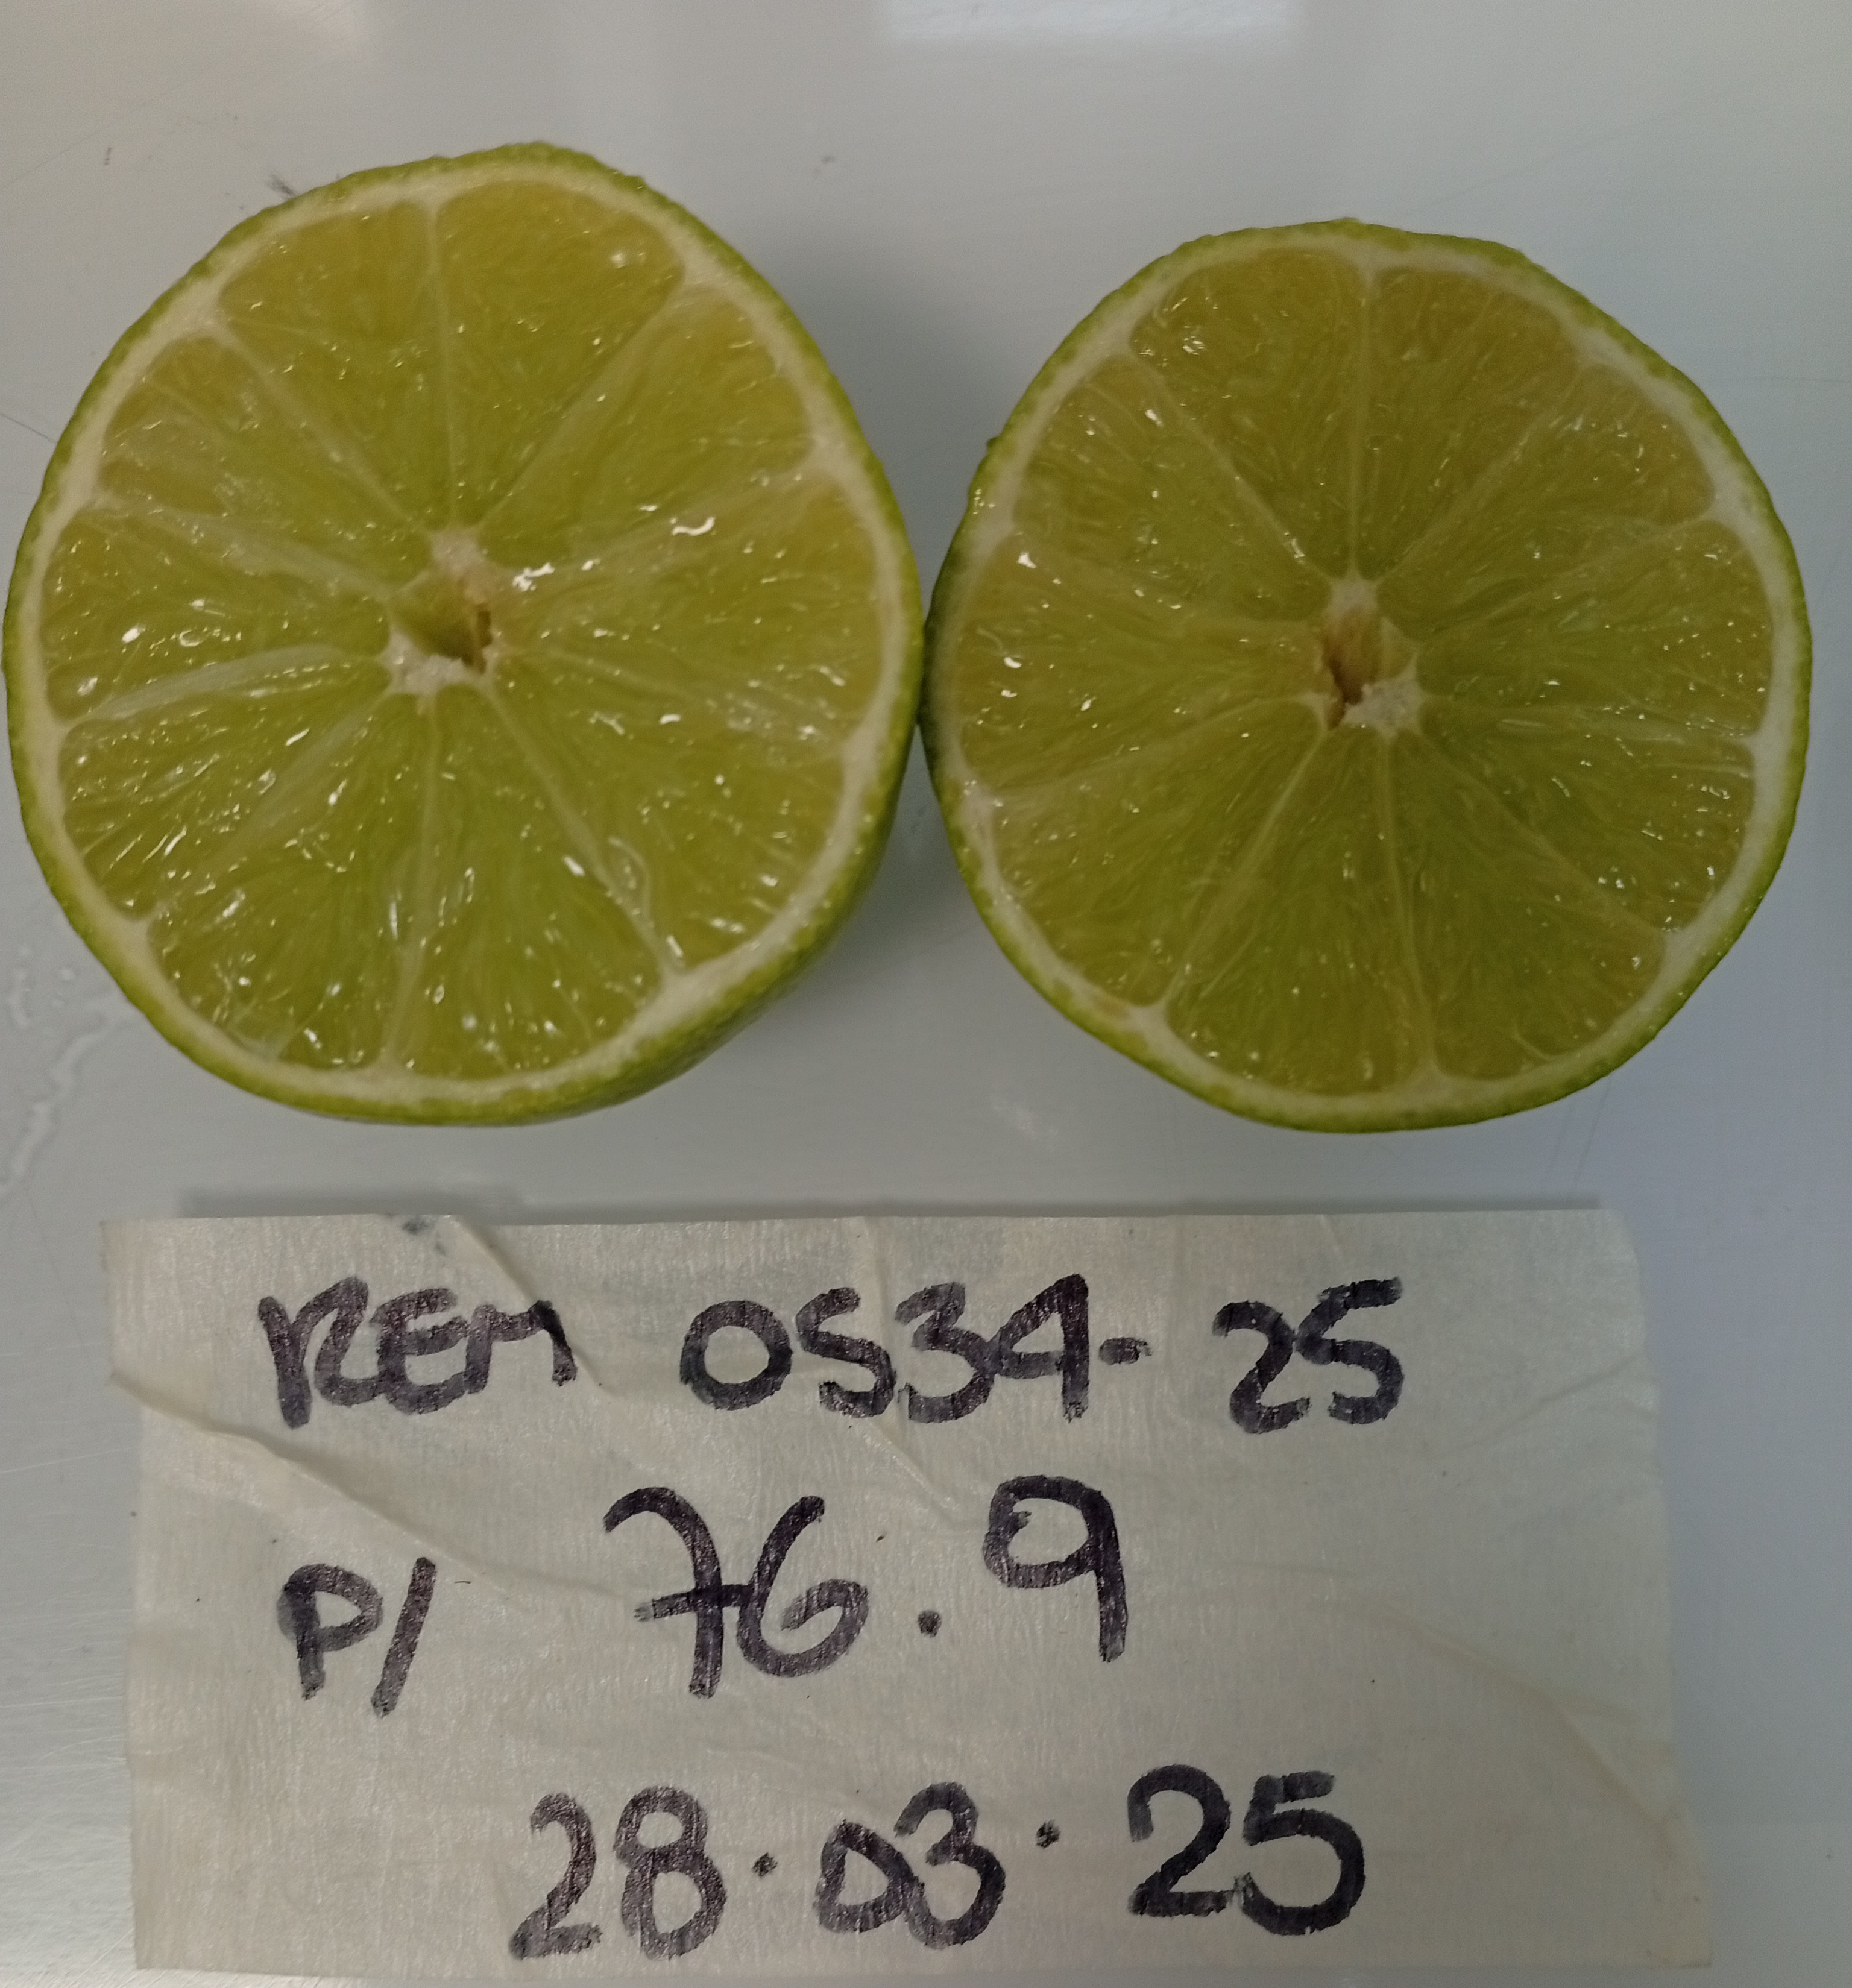 REM 0534-25
P/ 76.9
28.03.25